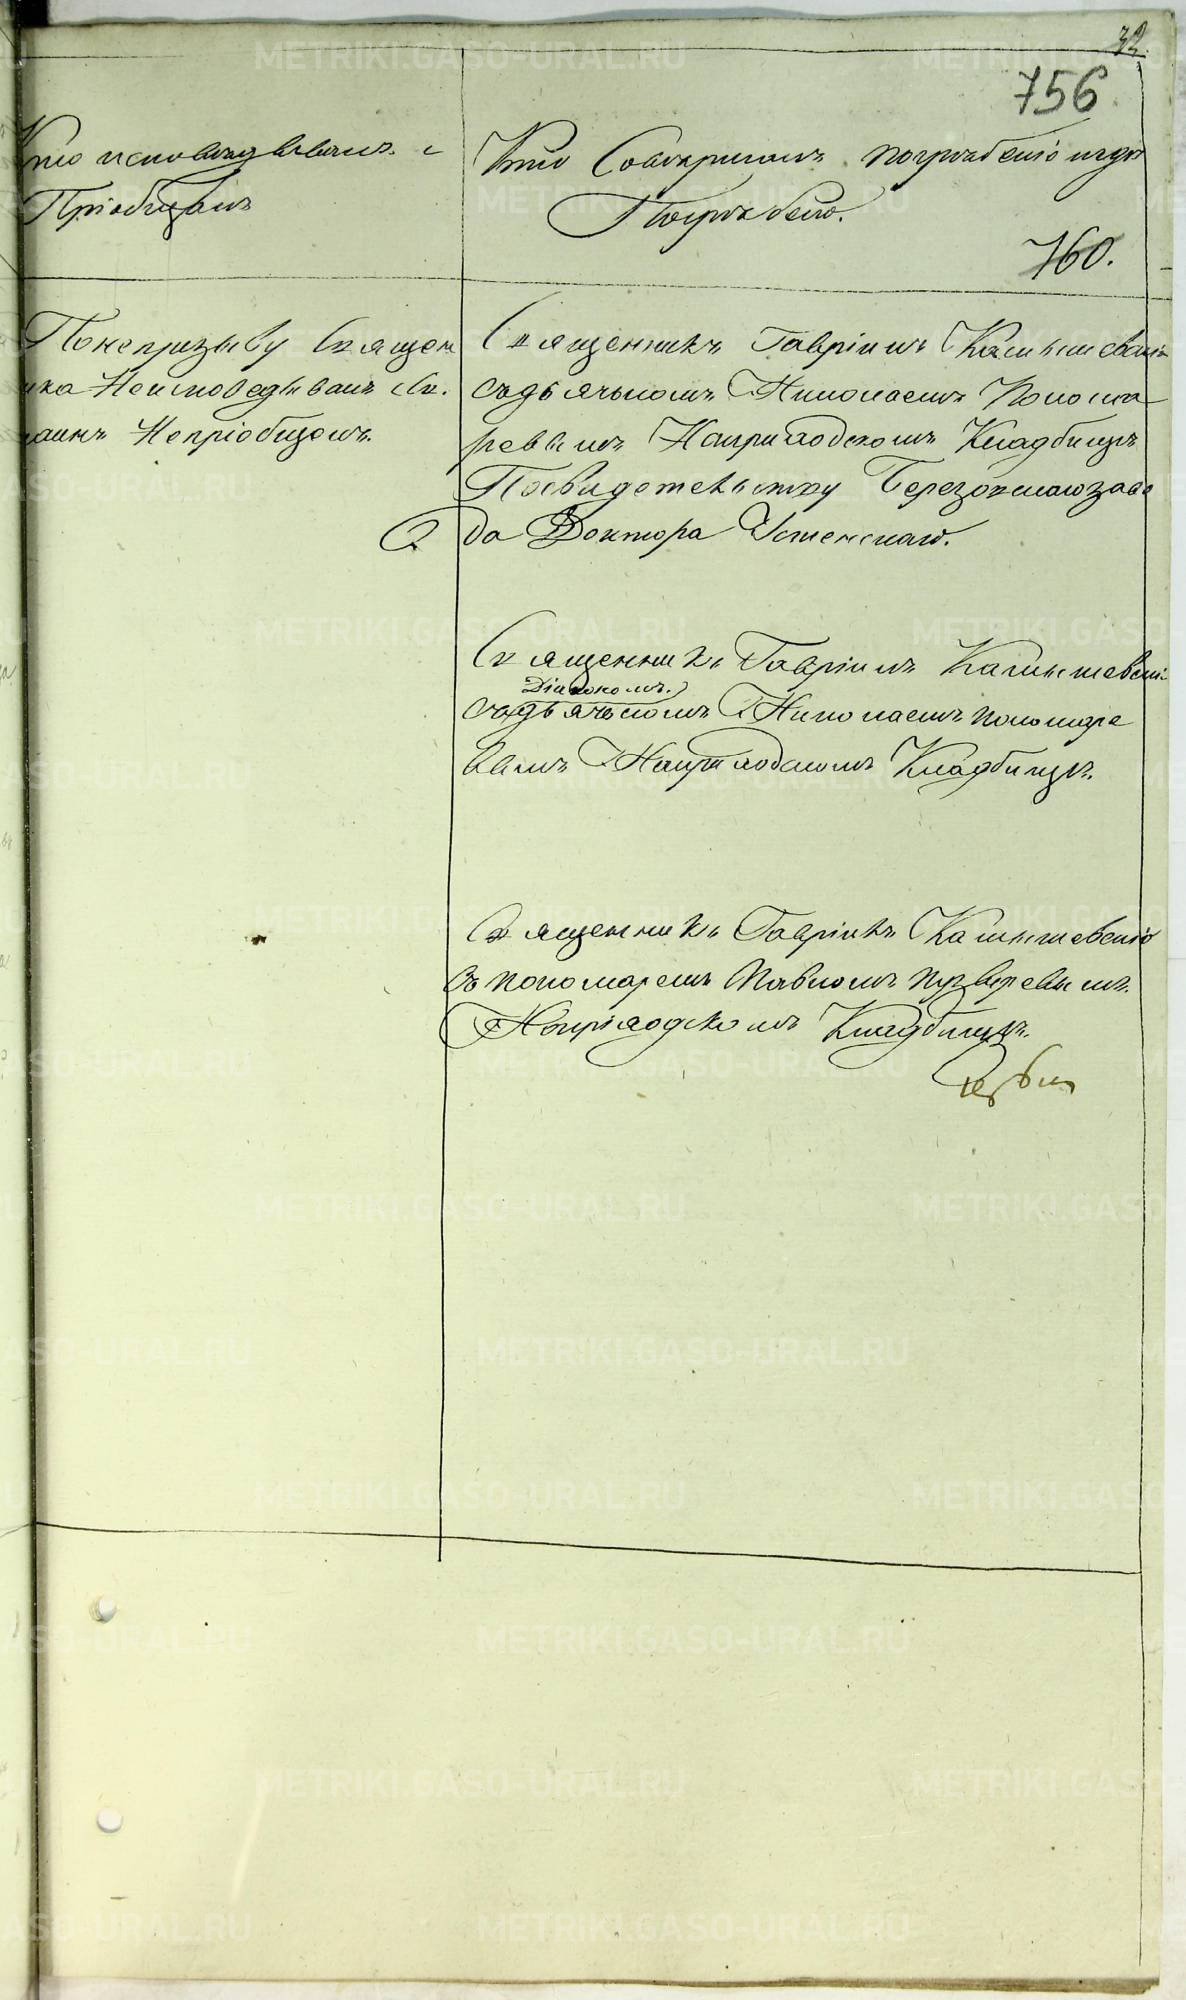 32.
756
Кто исповѣдывалъ и
Пріобщалъ
Кто Совершалъ погребеніе и гдѣ
Погребено.
760.
Понепризыву Священ
ика Неисповедыванъ
Непріобщонъ.
Священникъ Гавріилъ Камышевскій
содьячькомъ Николаемъ Понома
ревымъ Наприходскомъ Кладбищѣ
Посвидетельству Березовскаго заво
да Доктора Успенскаго.
Священникъ Гавріилъ Камышевскій
Діакономъ
содьячькомъ Николаемъ пономаре
вымъ Наприходскомъ Кладбищѣ.
Священникъ Гавріилъ Камышевскій
съ пономаремъ Павломъ
Наприходскомъ Кладбищѣ.
METRIKI.GASO-URAL.RU